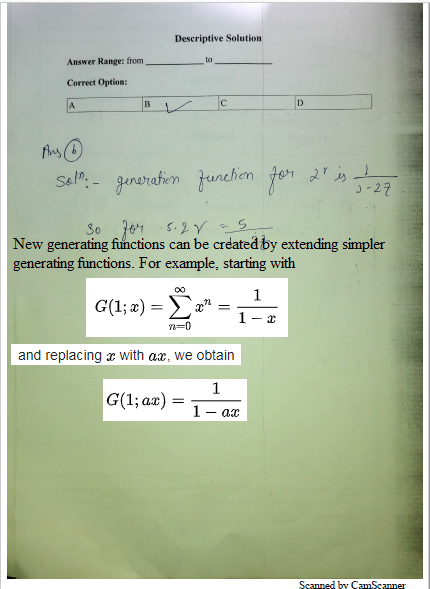 Descriptive Solution
Answer Range: from ____________ to ____________
Correct Option:
A B ✓ C D
Ans (b)
Solⁿ:- generation function for 2ʳ is 1/(1-2z)
So for 5.2ʳ = 5
New generating functions can be created by extending simpler
generating functions. For example, starting with
G(1; x) = ∑_{n=0}^{∞} xⁿ = 1/(1 − x)
and replacing x with ax, we obtain
G(1; ax) = 1/(1 − ax)
Scanned by CamScanner